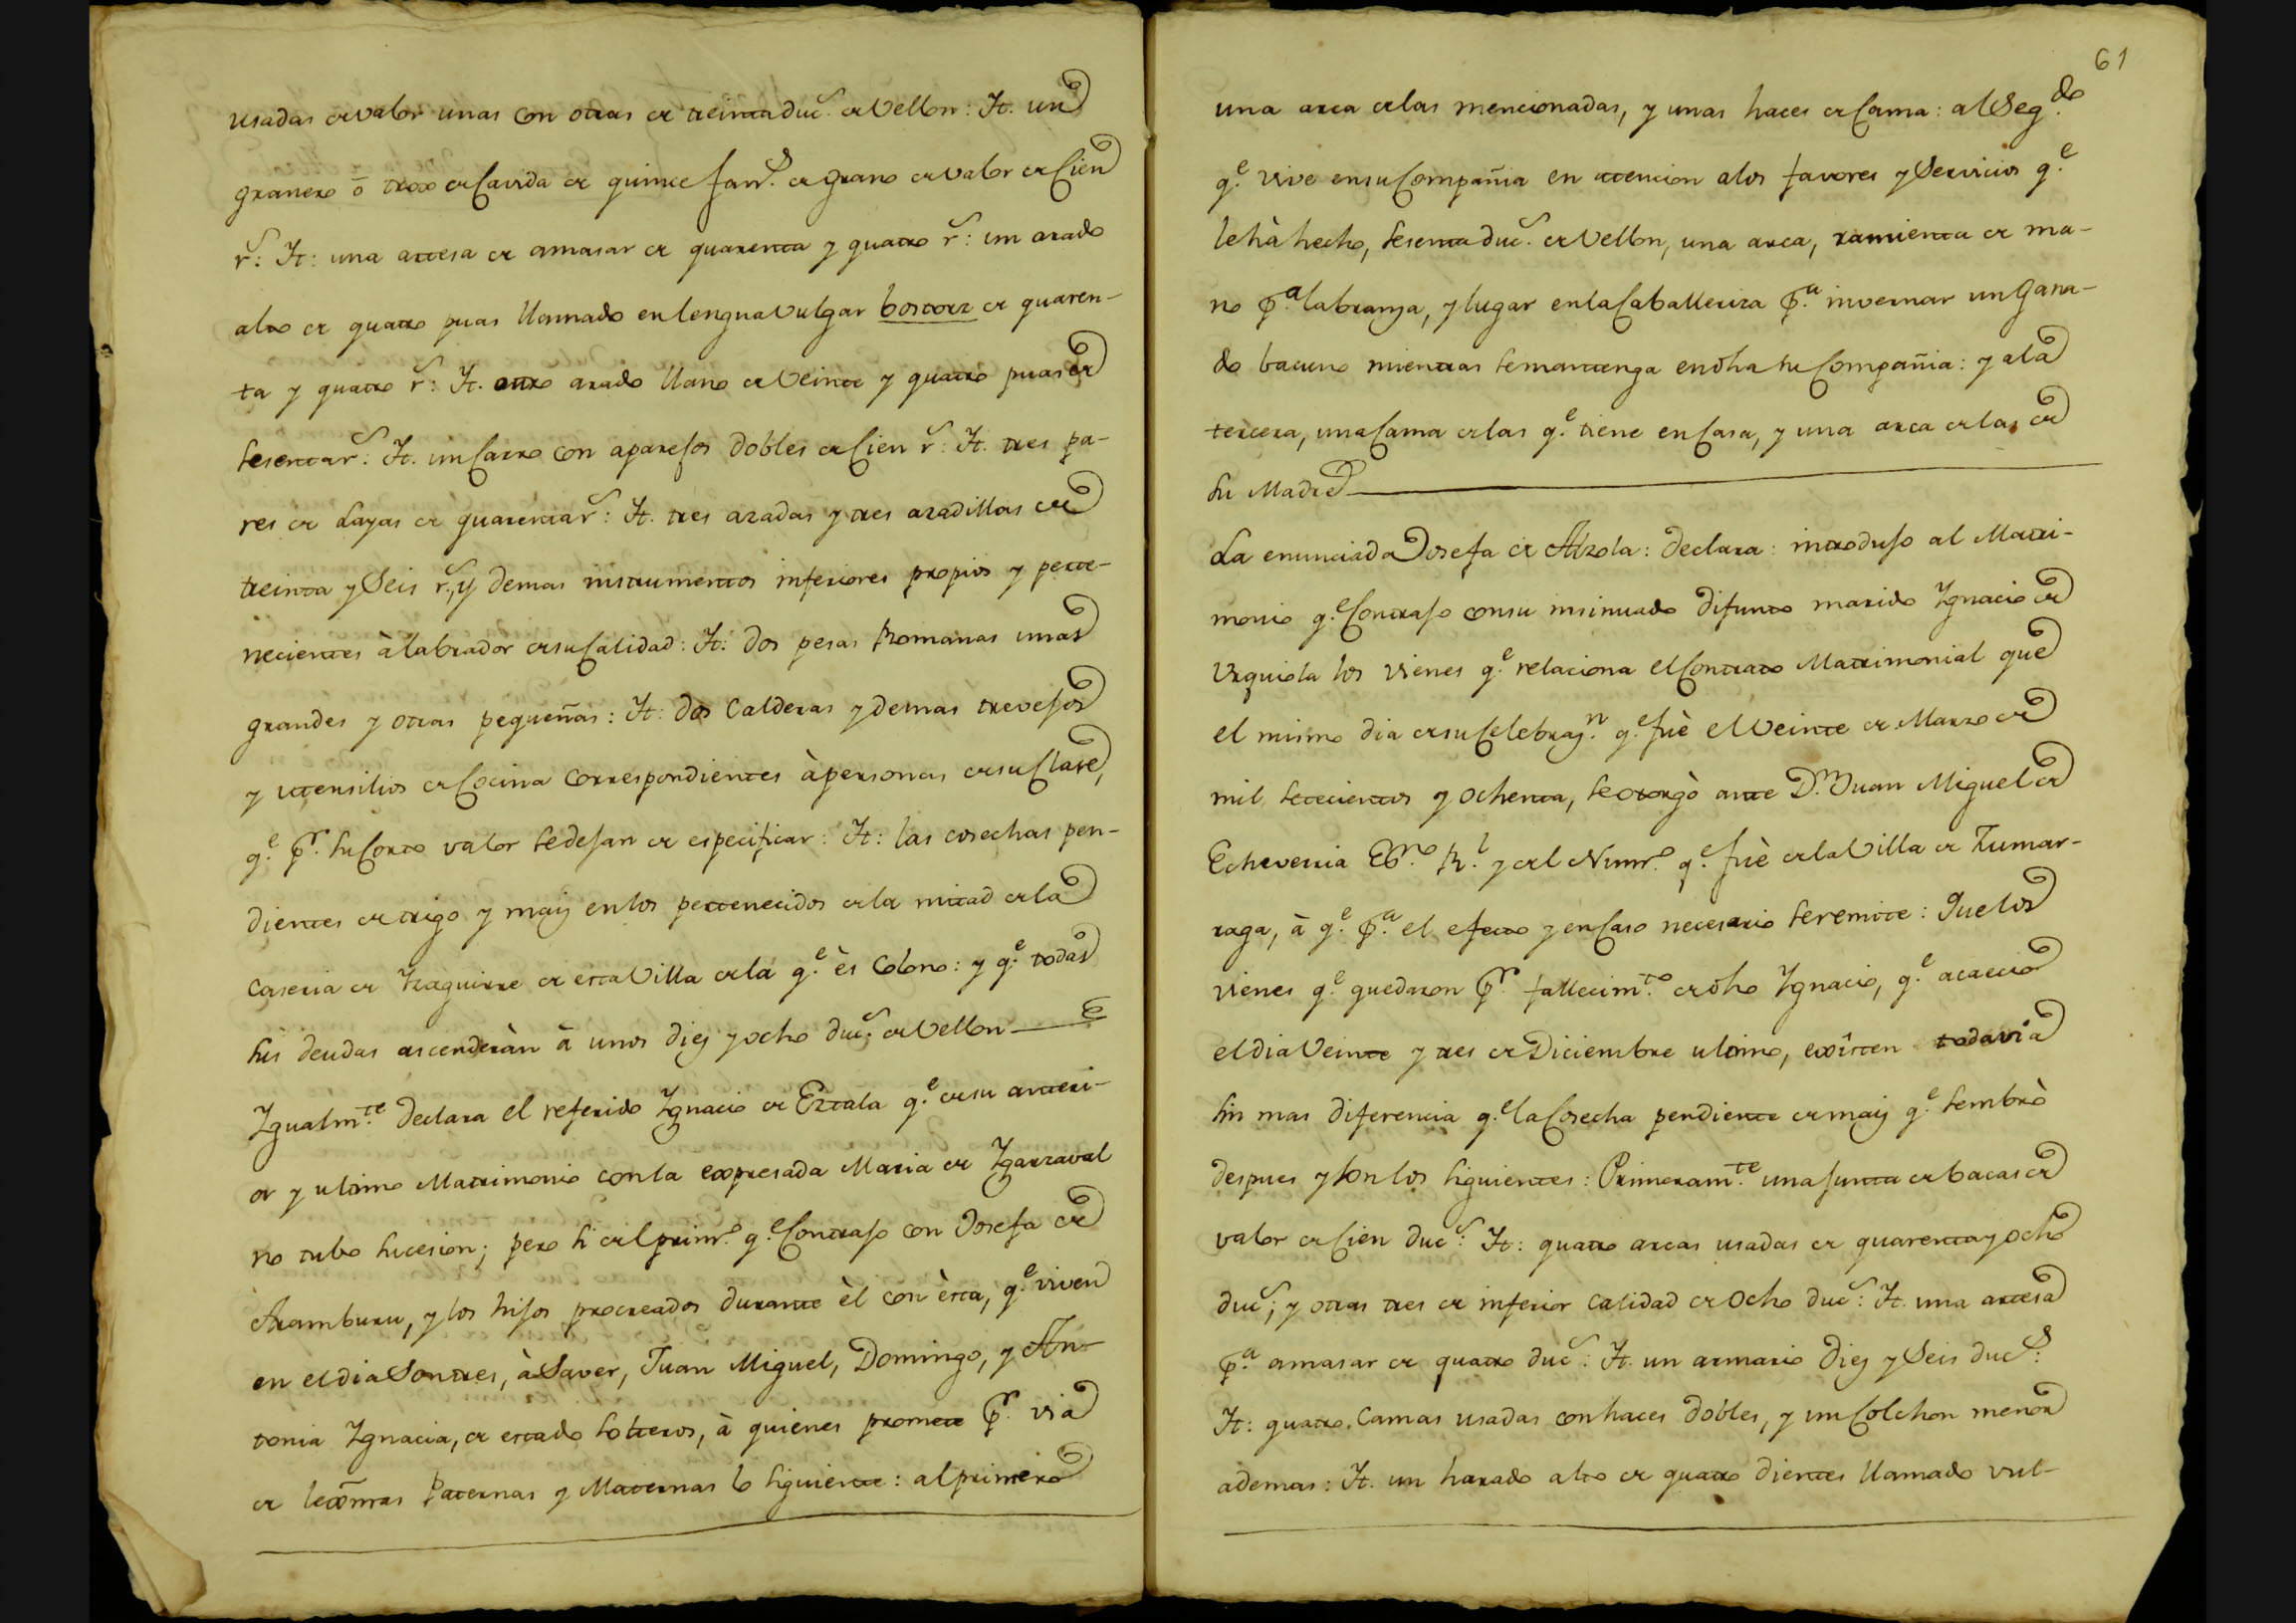 usadas de valor unas con otras de treinta duc.s de Vellon: It. un
granero ò trox de Cavida de quince fan.s de grano de valor de Cien
r.s: It: una artesa de amasar de quarenta y quatro r.s: un arado
alto de quatro puas llamado en lengua Vulgar bostorz de quaren-
ta y quatro r.s: It. otro arado llano de Veinte y quatro puas de
sesenta r.s: It. un Carro con aparejos dobles de Cien r.s: It. tres pa-
res de Layas de quarenta r.s: It. tres azadas y tres azadillas de
treinta y Seis r.s, y demas instrumentos inferiores propios y perte-
necientes à labrador de su Calidad: It: dos pesas Romanas unas
grandes y otras pequeñas: It: dos Calderas y demas trevejos
y utensilios de Cocina correspondientes à personas de su Clase,
q.e p.r su Corto valor se dejan de especificar: It: las cosechas pen-
dientes de trigo y maiz en los pertenecidos de la mitad de la
Caseria de Itraguirre de esta Villa de la q.e ès Colono: y q.e todas
sus deudas ascenderàn à unos diez y ocho duc.s de Vellon
Igualm.te declara el referido Ignacio de Eztala q.e de su anteri-
or y ultimo Matrimonio con la expresada Maria de Igarzaval
no tubo sucesion; pero si del prim.o q.e Contrajo con Josefa de
Aramburu, y los hijos procreados durante èl con èsta, q.e viven
en el dia Son tres, à Saver, Juan Miguel, Domingo, y An-
tonia Ignacia, de estado Solteros, à quienes promete p.r via
de lexmas Paternas y Maternas lo siguiente: al primero
61
una arca de las mencionadas, y unas haces de Cama: al Seg.do
q.e vive en su Compañia en atencion a los favores y Servicios q.e
le hà hecho, sesenta duc.s de Vellon, una arca, ramienta de ma-
no p.a labranza, y lugar en la Caballeriza p.a invernar un Gana-
do bacuno mientras se mantenga en dha su Compañia: y a la
tercera, una Cama de las q.e tiene en Casa, y una arca de las de
su Madre
La enunciada Josefa de Alzola: declara: introdujo al Matri-
monio q.e Contrajo con su insinuado difunto marido Ignacio de
Urquiola los vienes q.e relaciona el Contrato Matrimonial que
el mismo dia de su Celebraz.n q.e fuè el Veinte de Marzo de
mil setecientos y ochenta, se otorgò ante D.n Juan Miguel de
Echeverria Es.no R.l y del Num.o q.e fuè de la Villa de Zumar-
raga, à q.e p.a el efecto y en Caso necesario se remite: Que los
vienes q.e quedaron p.r fallecim.to de dho Ignacio, q.e acaeciò
el dia Veinte y tres de Diciembre ultimo, exîsten todavia
sin mas diferencia q.e la Cosecha pendiente de maiz q.e sembrò
despues y son los siguientes: Primeram.te una junta de bacas de
valor de Cien duc.s: It: quatro arcas usadas de quarenta y ocho
duc.s; y otras tres de inferior calidad de ocho duc.s: It. una artesa
p.a amasar de quatro duc.s: It. un armario diez y Seis duc.s:
It: quatro Camas usadas con haces dobles, y un Colchon menor
ademas: It. un harado alto de quatro dientes llamado vul-